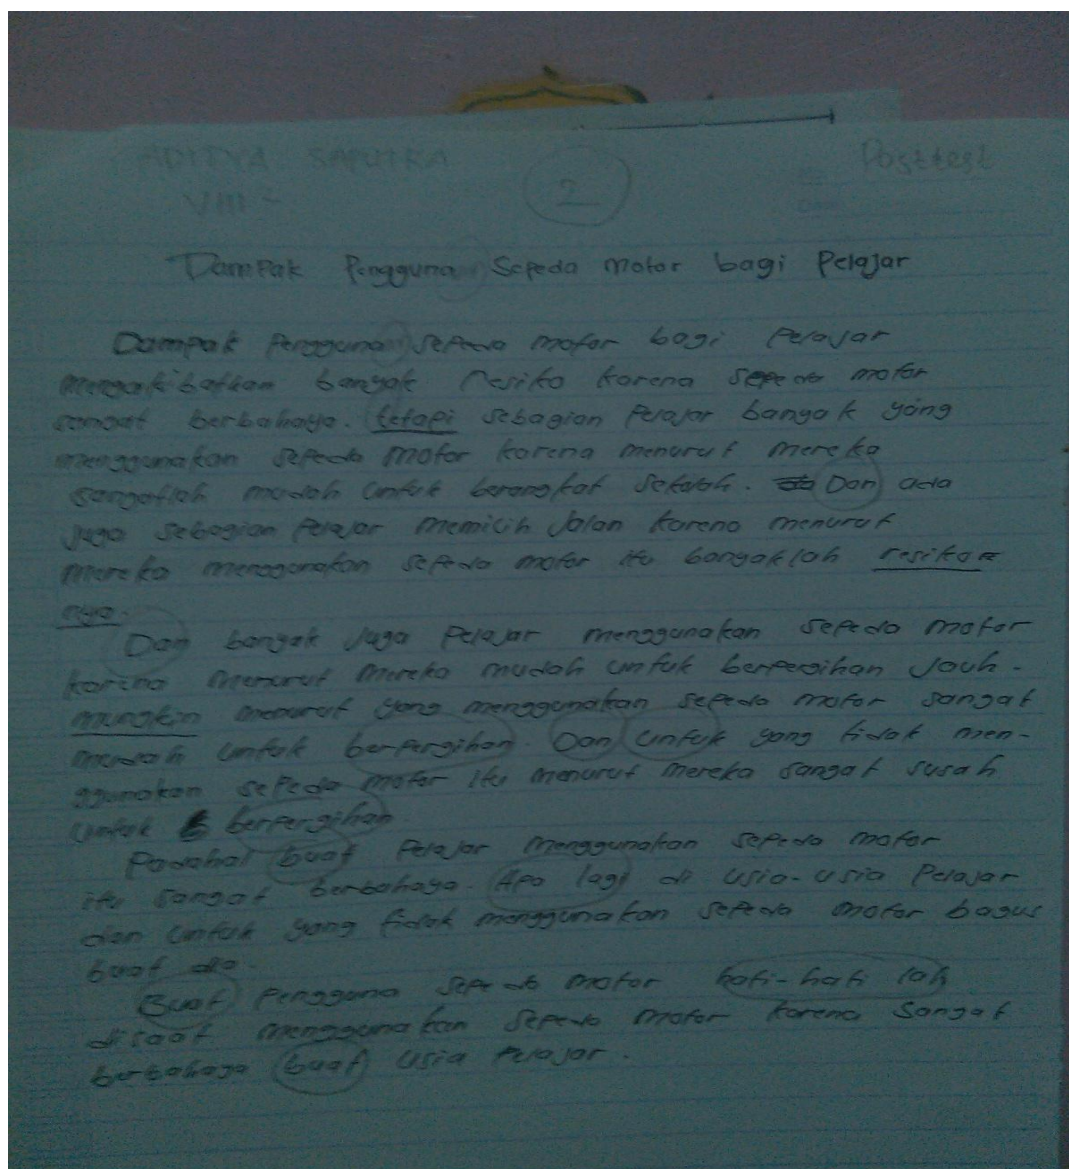 ADITYA SAPUTRA
Posttest
VIII
2
Dampak Pengguna Sepeda motor bagi Pelajar
Dampak Penggunan sepeda motor bagi Pelajar
mengakibatkan banyak resiko karena sepeda motor
sangat berbahaya. tetapi sebagian Pelajar banyak yang
menggunakan sepeda motor karena menurut mereka
sangatlah mudah untuk berangkat sekolah. Dan ada
juga sebagian Pelajar memilih Jalan karena menurut
mereka menggunakan sepeda motor itu banyaklah resiko
nya.
Dan banyak juga Pelajar menggunakan sepeda motor
karena menurut mereka mudah untuk berpergihan Jauh.
mungkin menurut yang menggunakan sepeda motor sangat
mudah untuk berpergihan. Dan untuk yang tidak men-
ggunakan sepeda motor itu menurut mereka sangat susah
untuk berpergihan.
Padahal buat Pelajar menggunakan sepeda motor
itu sangat berbahaya. Apa lagi di usia-usia Pelajar
dan untuk yang tidak menggunakan sepeda motor bagus
buat dia.
Buat Pengguna sepeda motor hati-hati lah
disaat menggunakan sepeda motor karena sangat
berbahaya buat usia Pelajar.